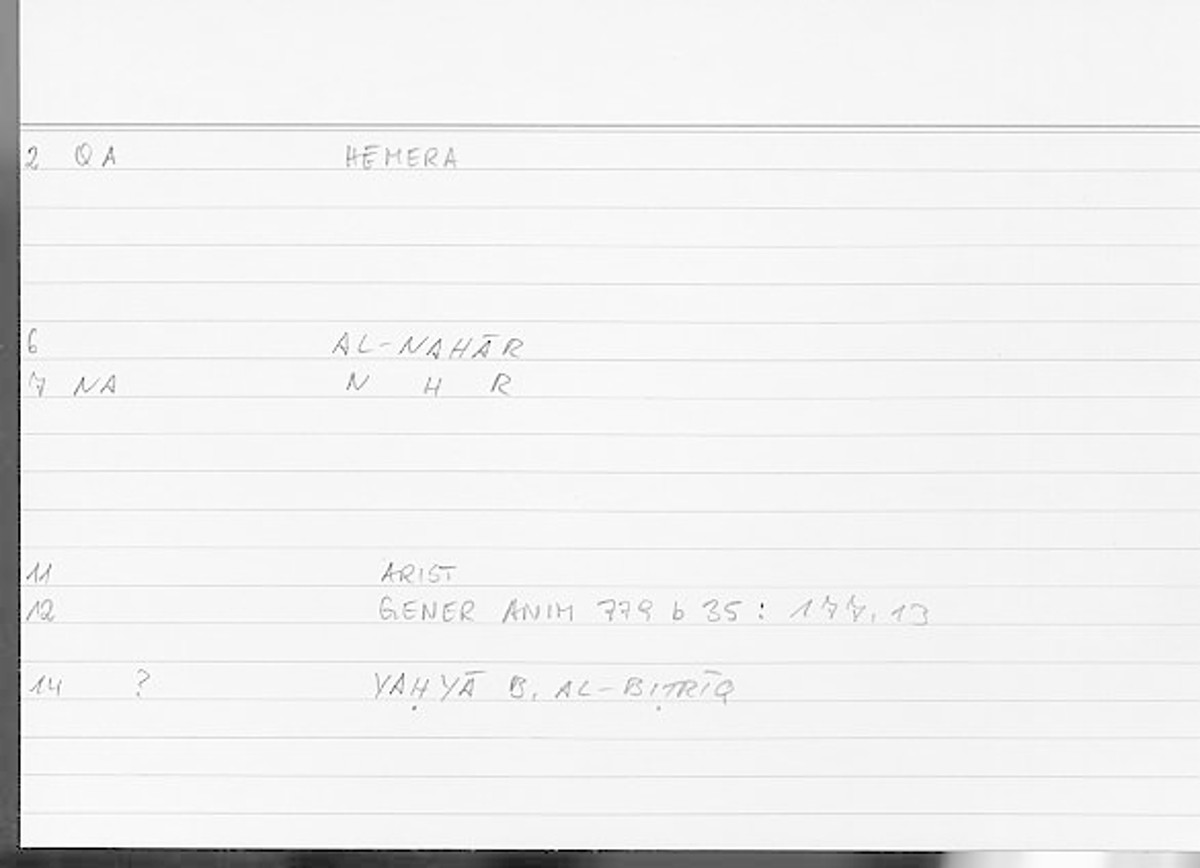 2 QA HĒMERA
6 AL-NAHĀR
7 NA N H R
11 ARIST
12 GENER ANIM 779 b 35 : 177, 13
14 ? YAḤYĀ B. AL-BIṬRĪQ